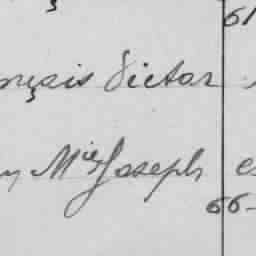 61
nçais Victor
Mie Joseph e
66-